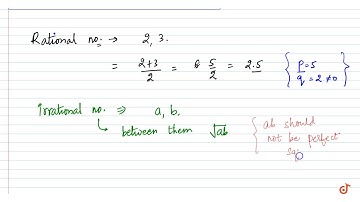 Rational no. → 2, 3.
= 2+3/2 = 5/2 = 2.5 { p=5
q = 2 ≠ 0 }
Irrational no. ⇒ a, b.
↳ between them √ab
{ ab should
not be perfect
sq